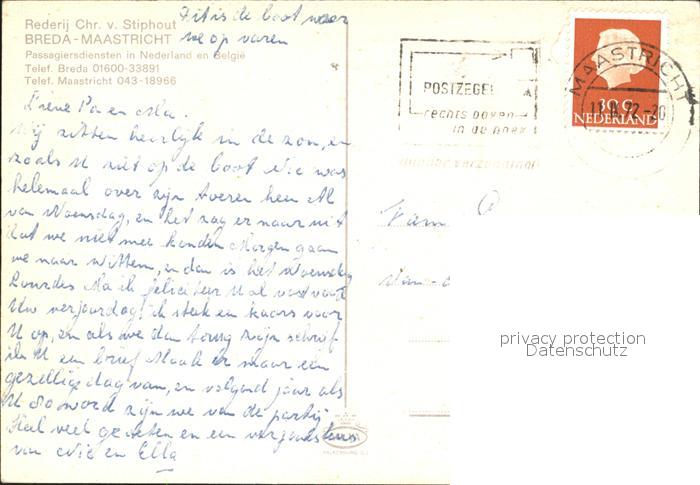 Rederij Chr. v. Stiphout
BREDA-MAASTRICHT
Passagiersdiensten in Nederland en België
Telef. Breda 01600-33891
Telef. Maastricht 043-18966
Dit is de boot waar
we op varen
Lieve Pa en Ma.
Wij zitten heerlijk in de zon, en
zoals U ziet op de boot Nic was
helemaal over zijn toeren heen Al
van Woensdag, en het zag er naar uit
dat we niet mee konden Morgen gaan
we naar Wittem, en dan is het Woensdag
Lourdes Ma ik feliciteer U al vast voor
Uw verjaardag, ik steek een kaars voor
U op, en als we dan terug zijn schrijf
ik U een brief Maak er maar een
gezellige dag van, en volgend jaar als
U 80 word zijn we van de partij
Heel veel groeten en een verjaardags
van Nic en Ella
POSTZEGEL
rechts boven
in de hoek
MAASTRICHT
30 C
NEDERLAND
Fam
privacy protection
Datenschutz